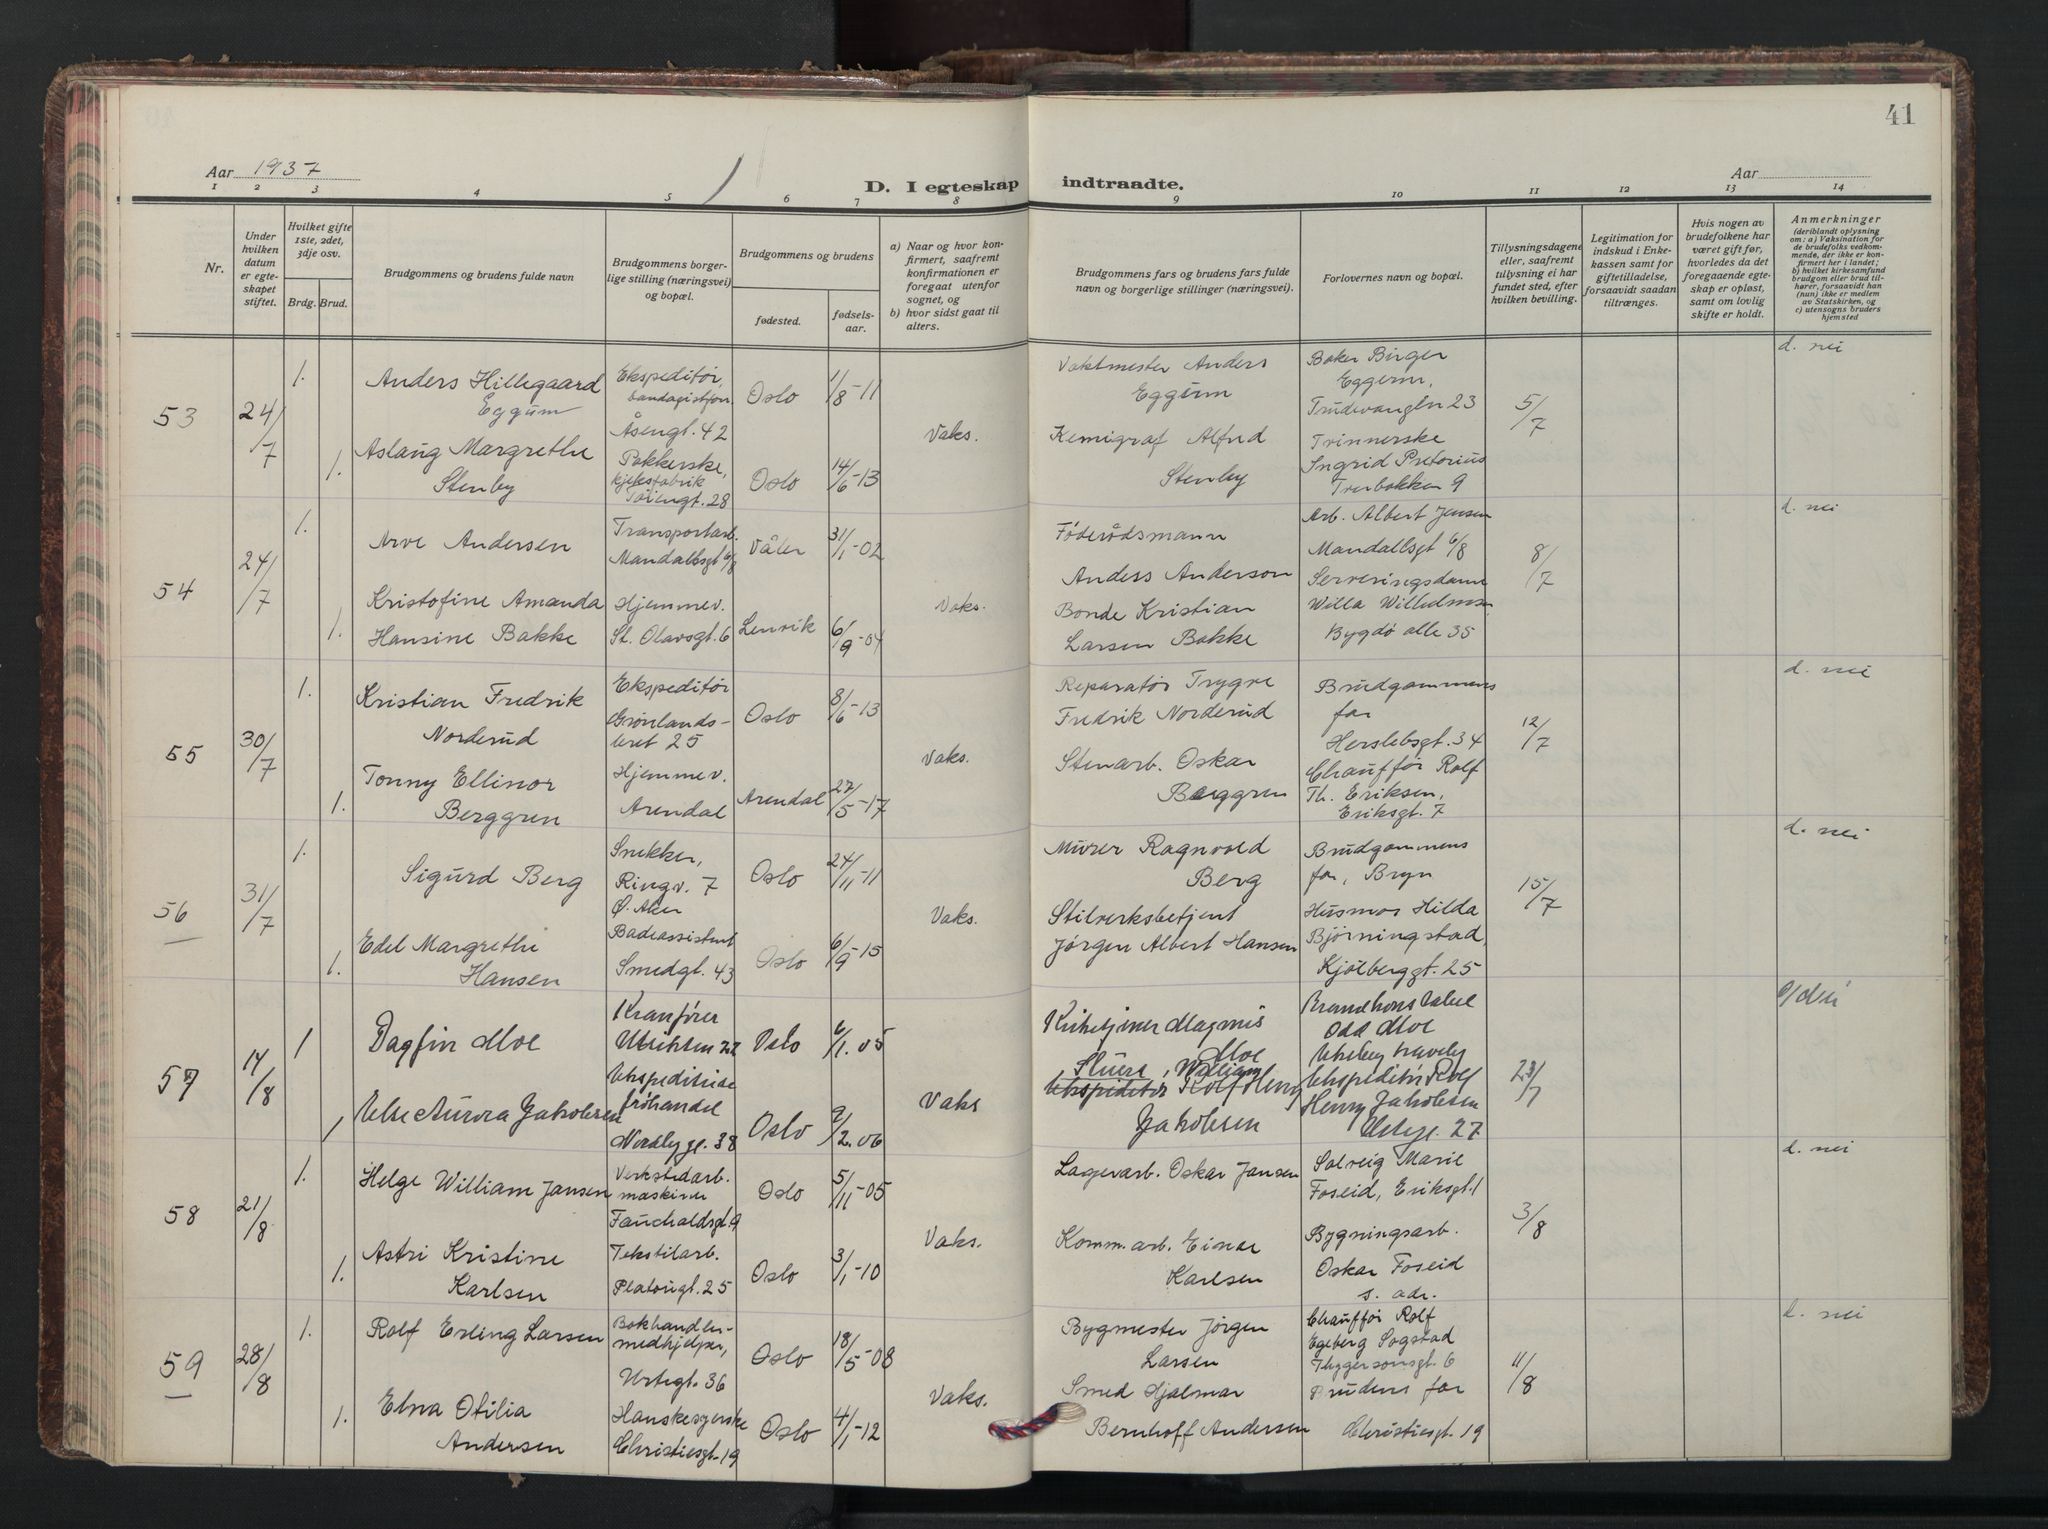 41
Aar 1937
D. I egteskap indtraadte.
Aar
1 2 3 4 5 6 7 8 9 10 11 12 13 14
Nr.
Under hvilken datum er egteskapet stiftet.
Hvilket gifte 1ste, 2det, 3dje osv.
Brdg. Brud.
Brudgommens og brudens fulde navn
Brudgommens borgerlige stilling (næringsvei) og bopæl.
Brudgommens og brudens
fødested.
fødselsaar.
a) Naar og hvor konfirmert, saafremt konfirmationen er foregaat utenfor sognet, og
b) hvor sidst gaat til alters.
Brudgommens fars og brudens fars fulde navn og borgerlige stillinger (næringsvei).
Forlovernes navn og bopæl.
Tillysningsdagene eller, saafremt tillysning ei har fundet sted, efter hvilken bevilling.
Legitimation for indskud i Enkekassen samt for giftetilladelse, forsaavidt saadan tiltrænges.
Hvis nogen av brudefolkene har været gift før, hvorledes da det foregaaende egteskap er opløst, samt om lovlig skifte er holdt.
Anmerkninger
(deriblandt oplysning om: a) Vaksination for de brudefolks vedkommende, der ikke er konfirmert her i landet;
b) hvilket kirkesamfund brudgom eller brud tilhører, forsaavidt han (hun) ikke er medlem av Statskirken, og
c) utensogns bruders hjemsted
53
24/7
1.
Anders Hillegaard
Eggum
Ekspeditør,
bandagistforr.
Åsengt. 42
Oslo
1/8-11
Vaktmester Anders
Eggum
Baker Birger
Eggum,
Trudvangln 23
5/7
d. nei
1.
Aslaug Margrethe
Stenby
Pakkerske,
kjeksfabrik
Tøiengt. 28
Oslo
14/6-13
Vaks.
Kemigraf Alfred
Stenby
Trinnerske
Ingrid Pretorius
Trerbakken 9
54
24/7
1.
Arve Andersen
Transportarb.
Mandallsgt 6/8
Våler
31/1-02
Føderådsmann
Anders Anderson
Arb. Albert Jensen
Mandallsgt 6/8
8/7
d. nei
1.
Kristofine Amanda
Hansine Bakke
Hjemmev.
St. Olavsgt. 6
Lenvik
6/9-04
Vaks.
Bonde Kristian
Larsen Bakke
Serveringsdame
Willa Wilhelmsen
Bygdø alle 35
55
30/7
1.
Kristian Fredrik
Norderud
Ekspeditør
Grønlands-
leret 25
Oslo
8/6-13
Reparatør Trygve
Fredrik Norderud
Brudgommens
far
Herslebsgt. 34
12/7
d. nei
1.
Tonny Ellinor
Berggren
Hjemmev.
Arendal
Arendal
27/5-17
Vaks.
Stenarb. Oskar
Berggren
Chauffør Rolf
Th. Eriksen,
Eriksgt. 7
56
31/7
1.
Sigurd Berg
Snekker,
Ringv. 7
Ø. Aker
Oslo
24/11-11
Murer Ragnvald
Berg
Brudgommens
far, Bryn
15/7
d. nei
1.
Edel Margrethe
Hansen
Badeassistent
Smedgt. 43
Oslo
6/9-15
Vaks.
Stilverksbetjent
Jørgen Albert Hansen
Husmor Hilda
Bjørningstad,
Kjølberggt. 25
57
14/8
1
Dagfin Moe
Kranfører
Oslo
6/1.05
Kirketjener Magnus
Moe
Brandkonstabel
Odd Moe
23/7
1
Else Aurora Jakobsen
Ekspeditrise
frøhandel
Nordbygt. 38
Oslo
9/2.06
Vaks
Stuert, William
Ekspeditør Rolf Henry
Jakobsen
Ekspeditør Rolf
Henry Jakobsen
27
58
21/8
1.
Helge William Jansen
Verkstedarb.
maskinv.
Fauchaldsgt. 9
Oslo
5/11-05
Lagerarb. Oskar Jansen
Solveig Marie
Foseid, Eriksgt. 1
3/8
d. nei
1.
Astri Kristine
Karlsen
Tekstilarb.
Platougt. 25
Oslo
3/1-10
Vaks.
Komm. arb. Einar
Karlsen
Bygningsarb.
Oskar Foseid
s. adr.
59
28/8
1.
Rolf Erling Larsen
Bokhandler-
medhjelper,
Urtegt. 36
Oslo
18/5-08
Bygmester Jørgen
Larsen
Chauffør Rolf
Egeberg Sogstad
Thygersonsgt. 6
11/8
d. nei
1.
Elna Otilia
Andersen
Hanskesyerske
Christiesgt. 19
Oslo
4/1-12
Vaks.
Smed Hjalmar
Bernhoff Andersen
Brudens far
Christiesgt. 19